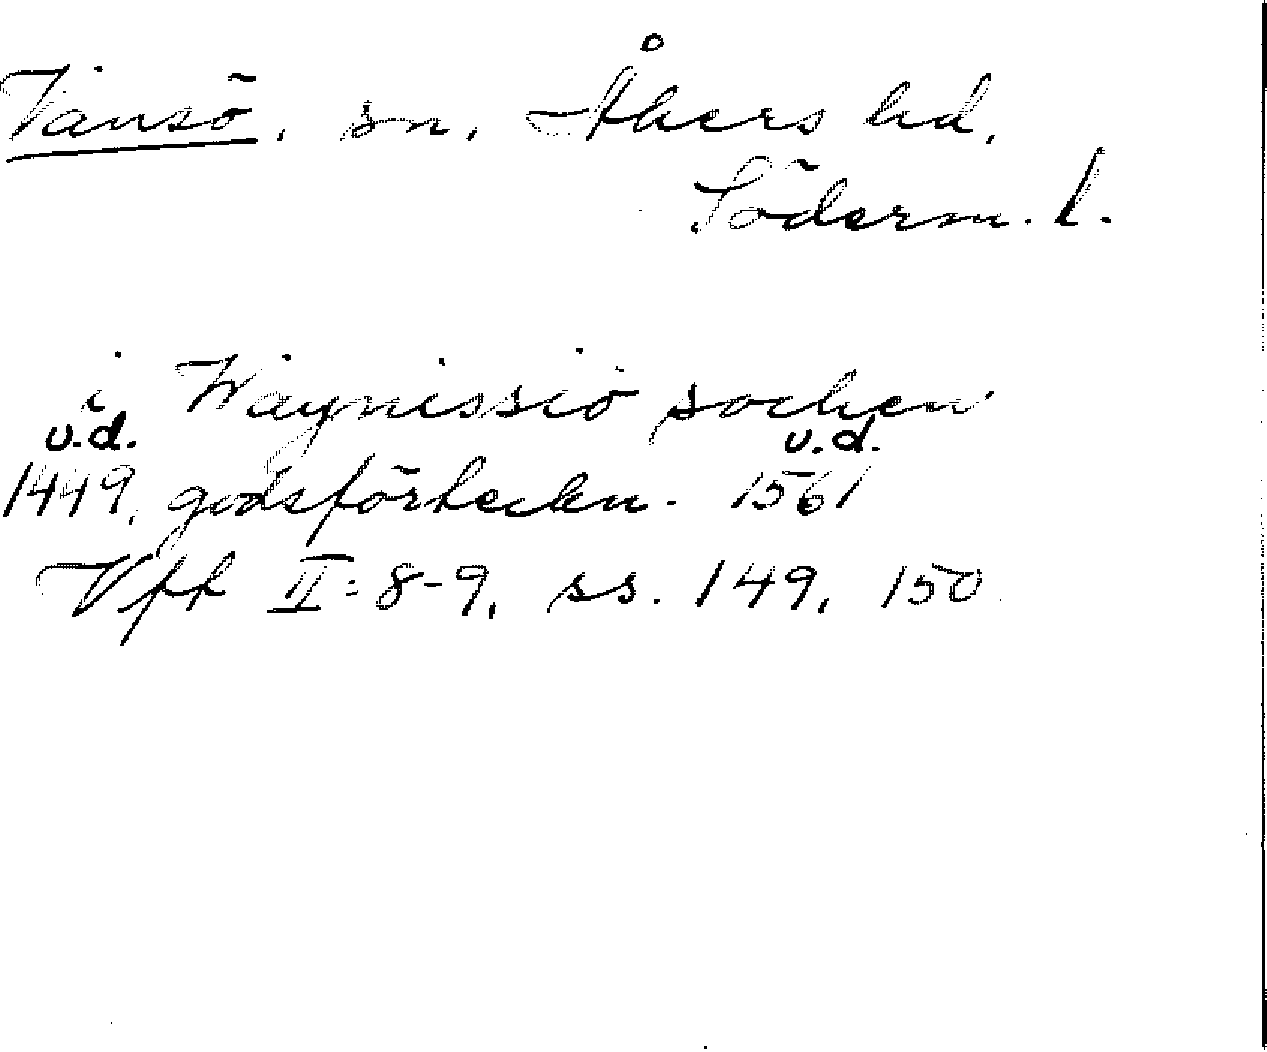 Vansö, sn, Åkers hd,
Söderm. l.
i Wäynissiö sochen
u.d. u.d.
1449, godsförteckn. 1561
Vfk II: 8-9, ss. 149, 150